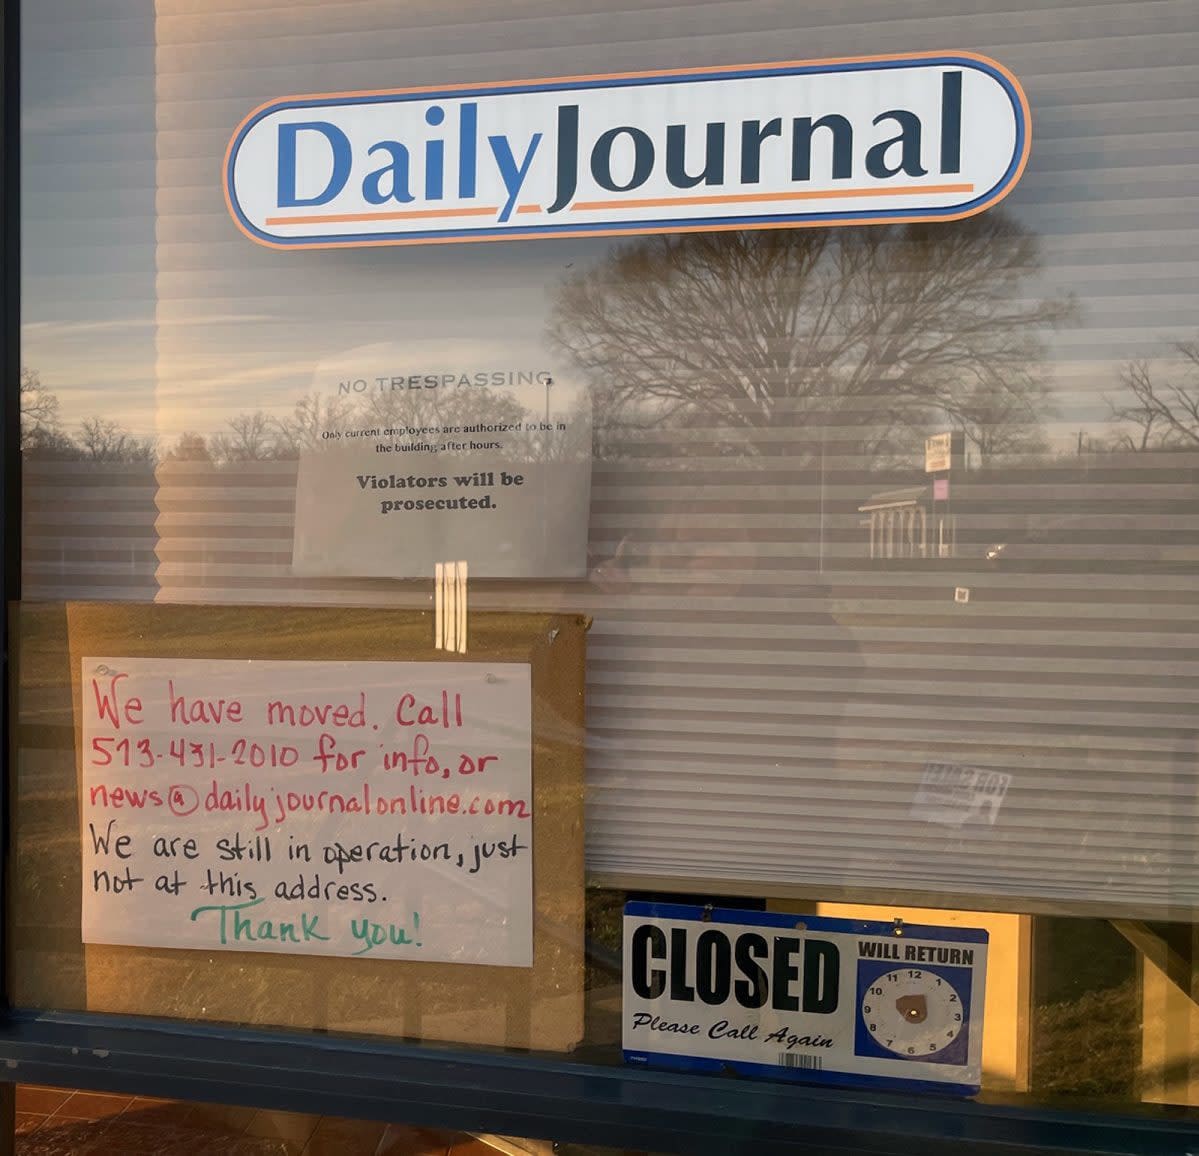 DailyJournal
NO TRESPASSING
Only current employees are authorized to be in
the building after hours.
Violators will be
prosecuted.
We have moved. Call
513-431-2010 for info, or
news@dailyjournalonline.com
We are still in operation, just
not at this address.
Thank you!
CLOSED
Please Call Again
WILL RETURN
12
1
2
3
4
5
6
7
8
9
10
11